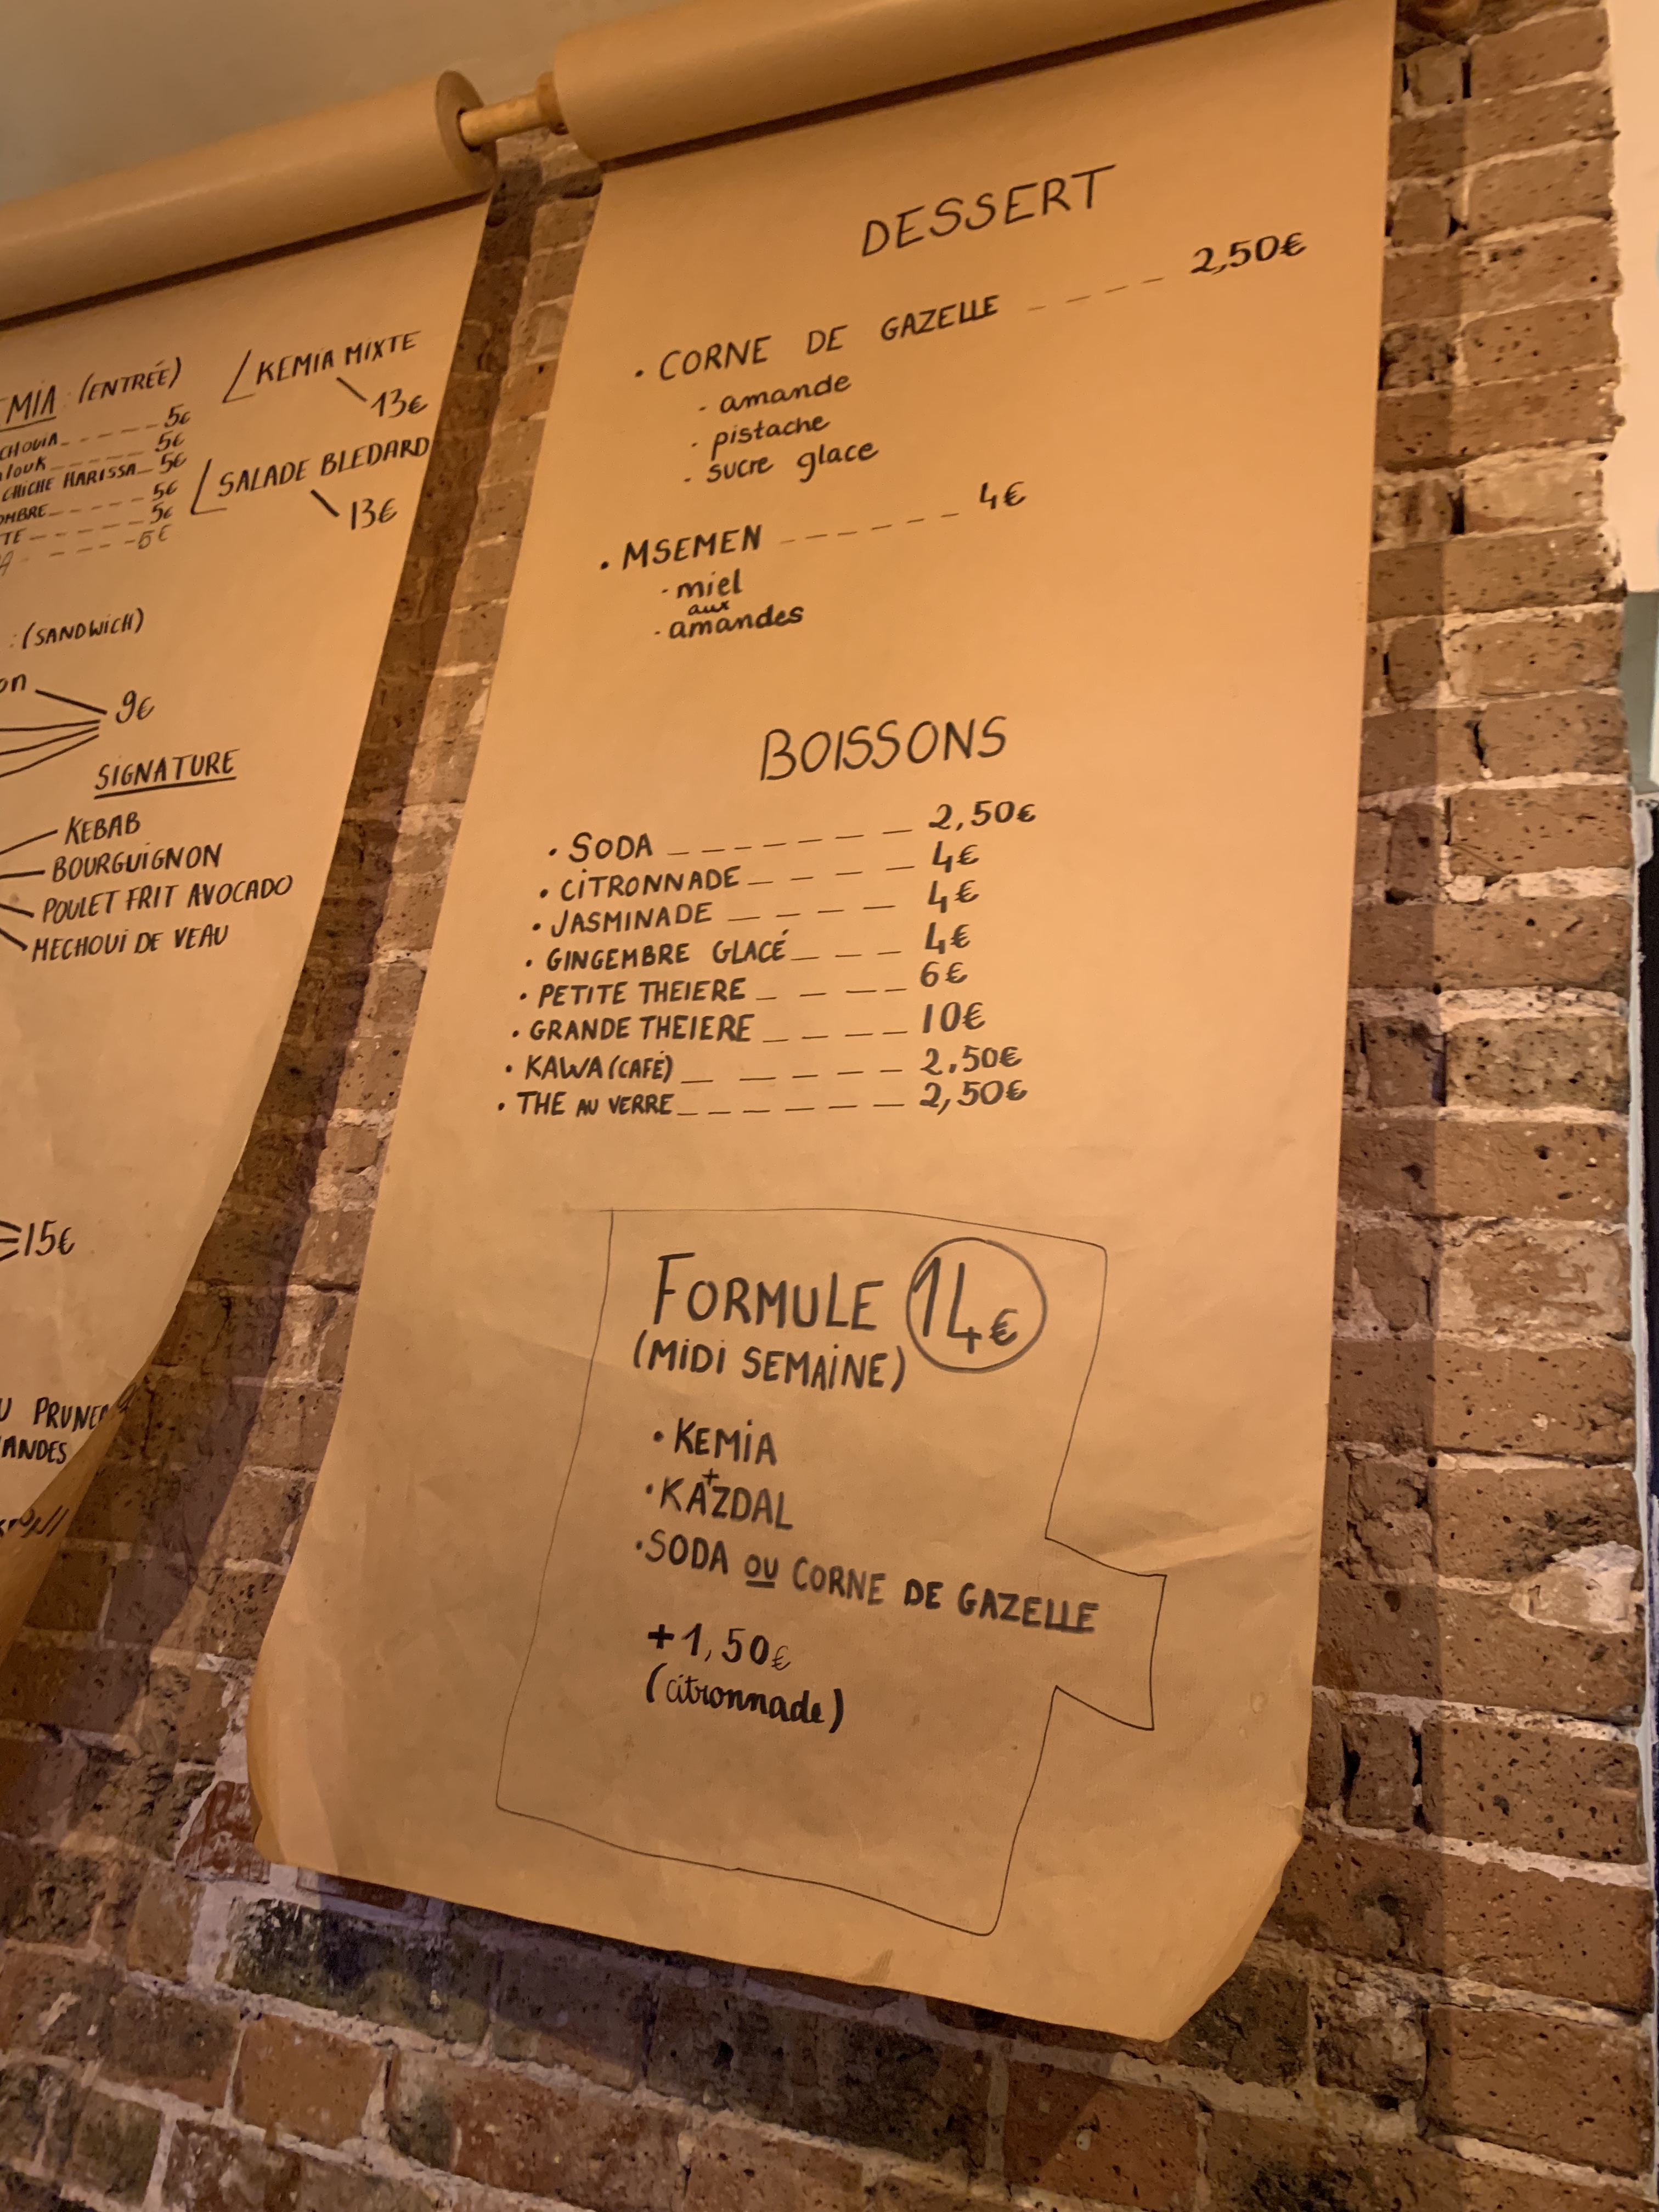 MIA (ENTRÉE)
CHOUIA 5€
louk 5€
CHICHE HARISSA 5€
OMBRE 5€
TE 5€
A 5€
KEMIA MIXTE
13€
SALADE BLEDARD
13€
: (SANDWICH)
on
9€
SIGNATURE
KEBAB
BOURGUIGNON
POULET FRIT AVOCADO
MECHOUI DE VEAU
15€
U PRUNE
ANDES
DESSERT
• CORNE DE GAZELLE 2,50€
- amande
- pistache
- sucre glace
• MSEMEN 4€
- miel
aux
- amandes
BOISSONS
• SODA 2,50€
• CITRONNADE 4€
• JASMINADE 4€
• GINGEMBRE GLACÉ 4€
• PETITE THEIERE 6€
• GRANDE THEIERE 10€
• KAWA (CAFÉ) 2,50€
• THE AU VERRE 2,50€
FORMULE 14€
(MIDI SEMAINE)
• KEMIA
+
• KAZDAL
• SODA OU CORNE DE GAZELLE
+1,50€
(citronnade)